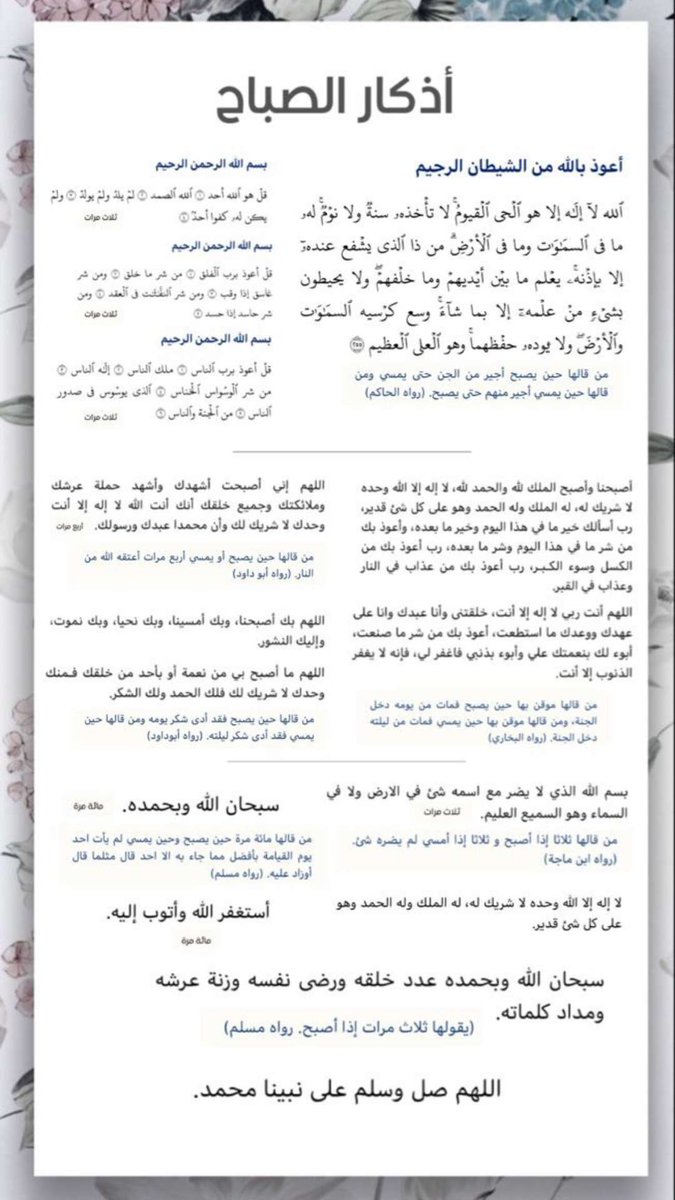 أذكار الصباح
أعوذ بالله من الشيطان الرجيم
ٱلله لآ إلٰه إلا هو ٱلْحى ٱلْقيومۚ لا تأْخذهۥ سنةٌ ولا نوْمٌۚ لهۥ
ما فى ٱلسمٰوٰت وما فى ٱلْأرْضۗ من ذا ٱلذى يشْفع عندهۥٓ
إلا بإذْنهۦۚ يعْلم ما بيْن أيْديهمْ وما خلْفهمْۖ ولا يحيطون
بشىْءٍ منْ علْمهۦٓ إلا بما شآءۚ وسع كرْسيه ٱلسمٰوٰت
وٱلْأرْضۖ ولا يودهۥ حفْظهماۚ وهو ٱلْعلى ٱلْعظيم ٢٥٥
من قالها حين يصبح أجير من الجن حتى يمسي ومن
قالها حين يمسي أجير منهم حتى يصبح. (رواه الحاكم)
بسم الله الرحمن الرحيم
قلْ هو ٱلله أحد ١ ٱلله ٱلصمد ٢ لمْ يلدْ ولمْ يولدْ ٣ ولمْ
يكن لهۥ كفوا أحدٌ ٤
ثلاث مرات
بسم الله الرحمن الرحيم
قلْ أعوذ برب ٱلْفلق ١ من شر ما خلق ٢ ومن شر
غاسق إذا وقب ٣ ومن شر ٱلنفٰثٰت فى ٱلْعقد ٤ ومن
شر حاسد إذا حسد ٥
ثلاث مرات
بسم الله الرحمن الرحيم
قلْ أعوذ برب ٱلناس ١ ملك ٱلناس ٢ إلٰه ٱلناس ٣
من شر ٱلْوسْواس ٱلْخناس ٤ ٱلذى يوسْوس فى صدور
ٱلناس ٥ من ٱلْجنة وٱلناس ٦
ثلاث مرات
أصبحنا وأصبح الملك لله والحمد لله، لا إله إلا الله وحده
لا شريك له، له الملك وله الحمد وهو على كل شئ قدير،
رب أسألك خير ما في هذا اليوم وخير ما بعده، وأعوذ بك
من شر ما في هذا اليوم وشر ما بعده، رب أعوذ بك من
الكسل وسوء الكبر، رب أعوذ بك من عذاب في النار
وعذاب في القبر.
اللهم أنت ربي لا إله إلا أنت، خلقتنى وأنا عبدك وانا على
عهدك ووعدك ما استطعت، أعوذ بك من شر ما صنعت،
أبوء لك بنعمتك علي وأبوء بذنبي فاغفر لي، فإنه لا يغفر
الذنوب إلا أنت.
من قالها موقن بها حين يصبح فمات من يومه دخل
الجنة، ومن قالها موقن بها حين يمسي فمات من ليلته
دخل الجنة. (رواه البخاري)
اللهم إني أصبحت أشهدك وأشهد حملة عرشك
وملائكتك وجميع خلقك أنك أنت الله لا إله إلا أنت
وحدك لا شريك لك وأن محمدا عبدك ورسولك. أربع مرات
من قالها حين يصبح أو يمسي أربع مرات أعتقه الله من
النار. (رواه أبو داود)
اللهم بك أصبحنا، وبك أمسينا، وبك نحيا، وبك نموت،
وإليك النشور.
اللهم ما أصبح بي من نعمة أو بأحد من خلقك فمنك
وحدك لا شريك لك فلك الحمد ولك الشكر.
من قالها حين يصبح فقد أدى شكر يومه ومن قالها حين
يمسي فقد أدى شكر ليلته. (رواه أبوداود)
بسم الله الذي لا يضر مع اسمه شئ في الارض ولا في
السماء وهو السميع العليم. ثلاث مرات
من قالها ثلاثا إذا أصبح و ثلاثا إذا أمسي لم يضره شئ.
(رواه ابن ماجة)
لا إله إلا الله وحده لا شريك له، له الملك وله الحمد وهو
على كل شئ قدير.
سبحان الله وبحمده. مائة مرة
من قالها مائة مرة حين يصبح وحين يمسي لم يأت احد
يوم القيامة بأفضل مما جاء به الا احد قال مثلما قال
أوزاد عليه. (رواه مسلم)
أستغفر الله وأتوب إليه.
مائة مرة
سبحان الله وبحمده عدد خلقه ورضى نفسه وزنة عرشه
ومداد كلماته.
(يقولها ثلاث مرات إذا أصبح. رواه مسلم)
اللهم صل وسلم على نبينا محمد.